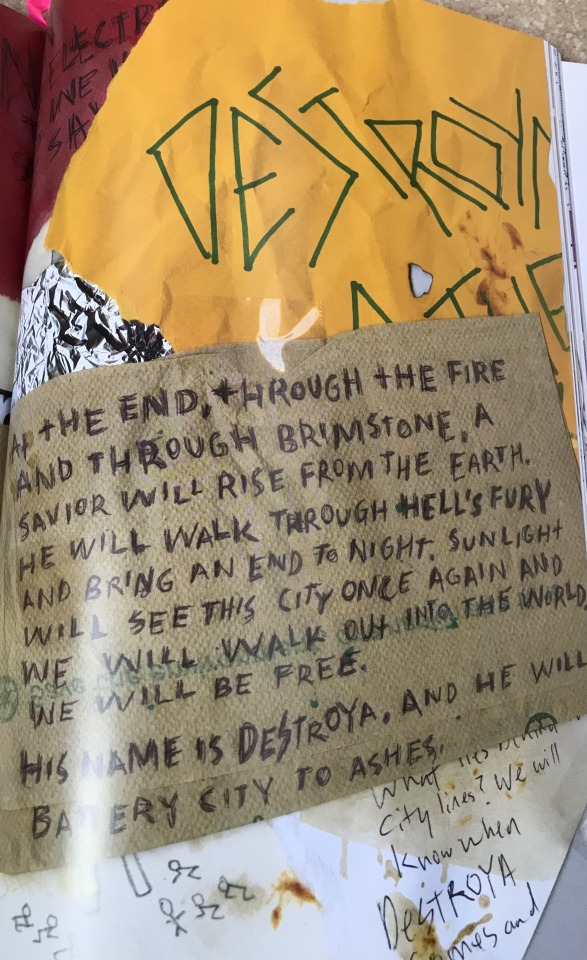 ELECTR
WE
SA
DESTROYA
THE
AT THE END, THROUGH THE FIRE
AND THROUGH BRIMSTONE, A
SAVIOR WILL RISE FROM THE EARTH.
HE WILL WALK THROUGH HELL'S FURY
AND BRING AN END TO NIGHT. SUNLIGHT
WILL SEE THIS CITY ONCE AGAIN AND
WE WILL WALK OUT INTO THE WORLD,
WE WILL BE FREE.
HIS NAME IS DESTROYA. AND HE WILL
BATTERY CITY TO ASHES.
What lies behind
city lines? We will
know when
DESTROYA
comes and